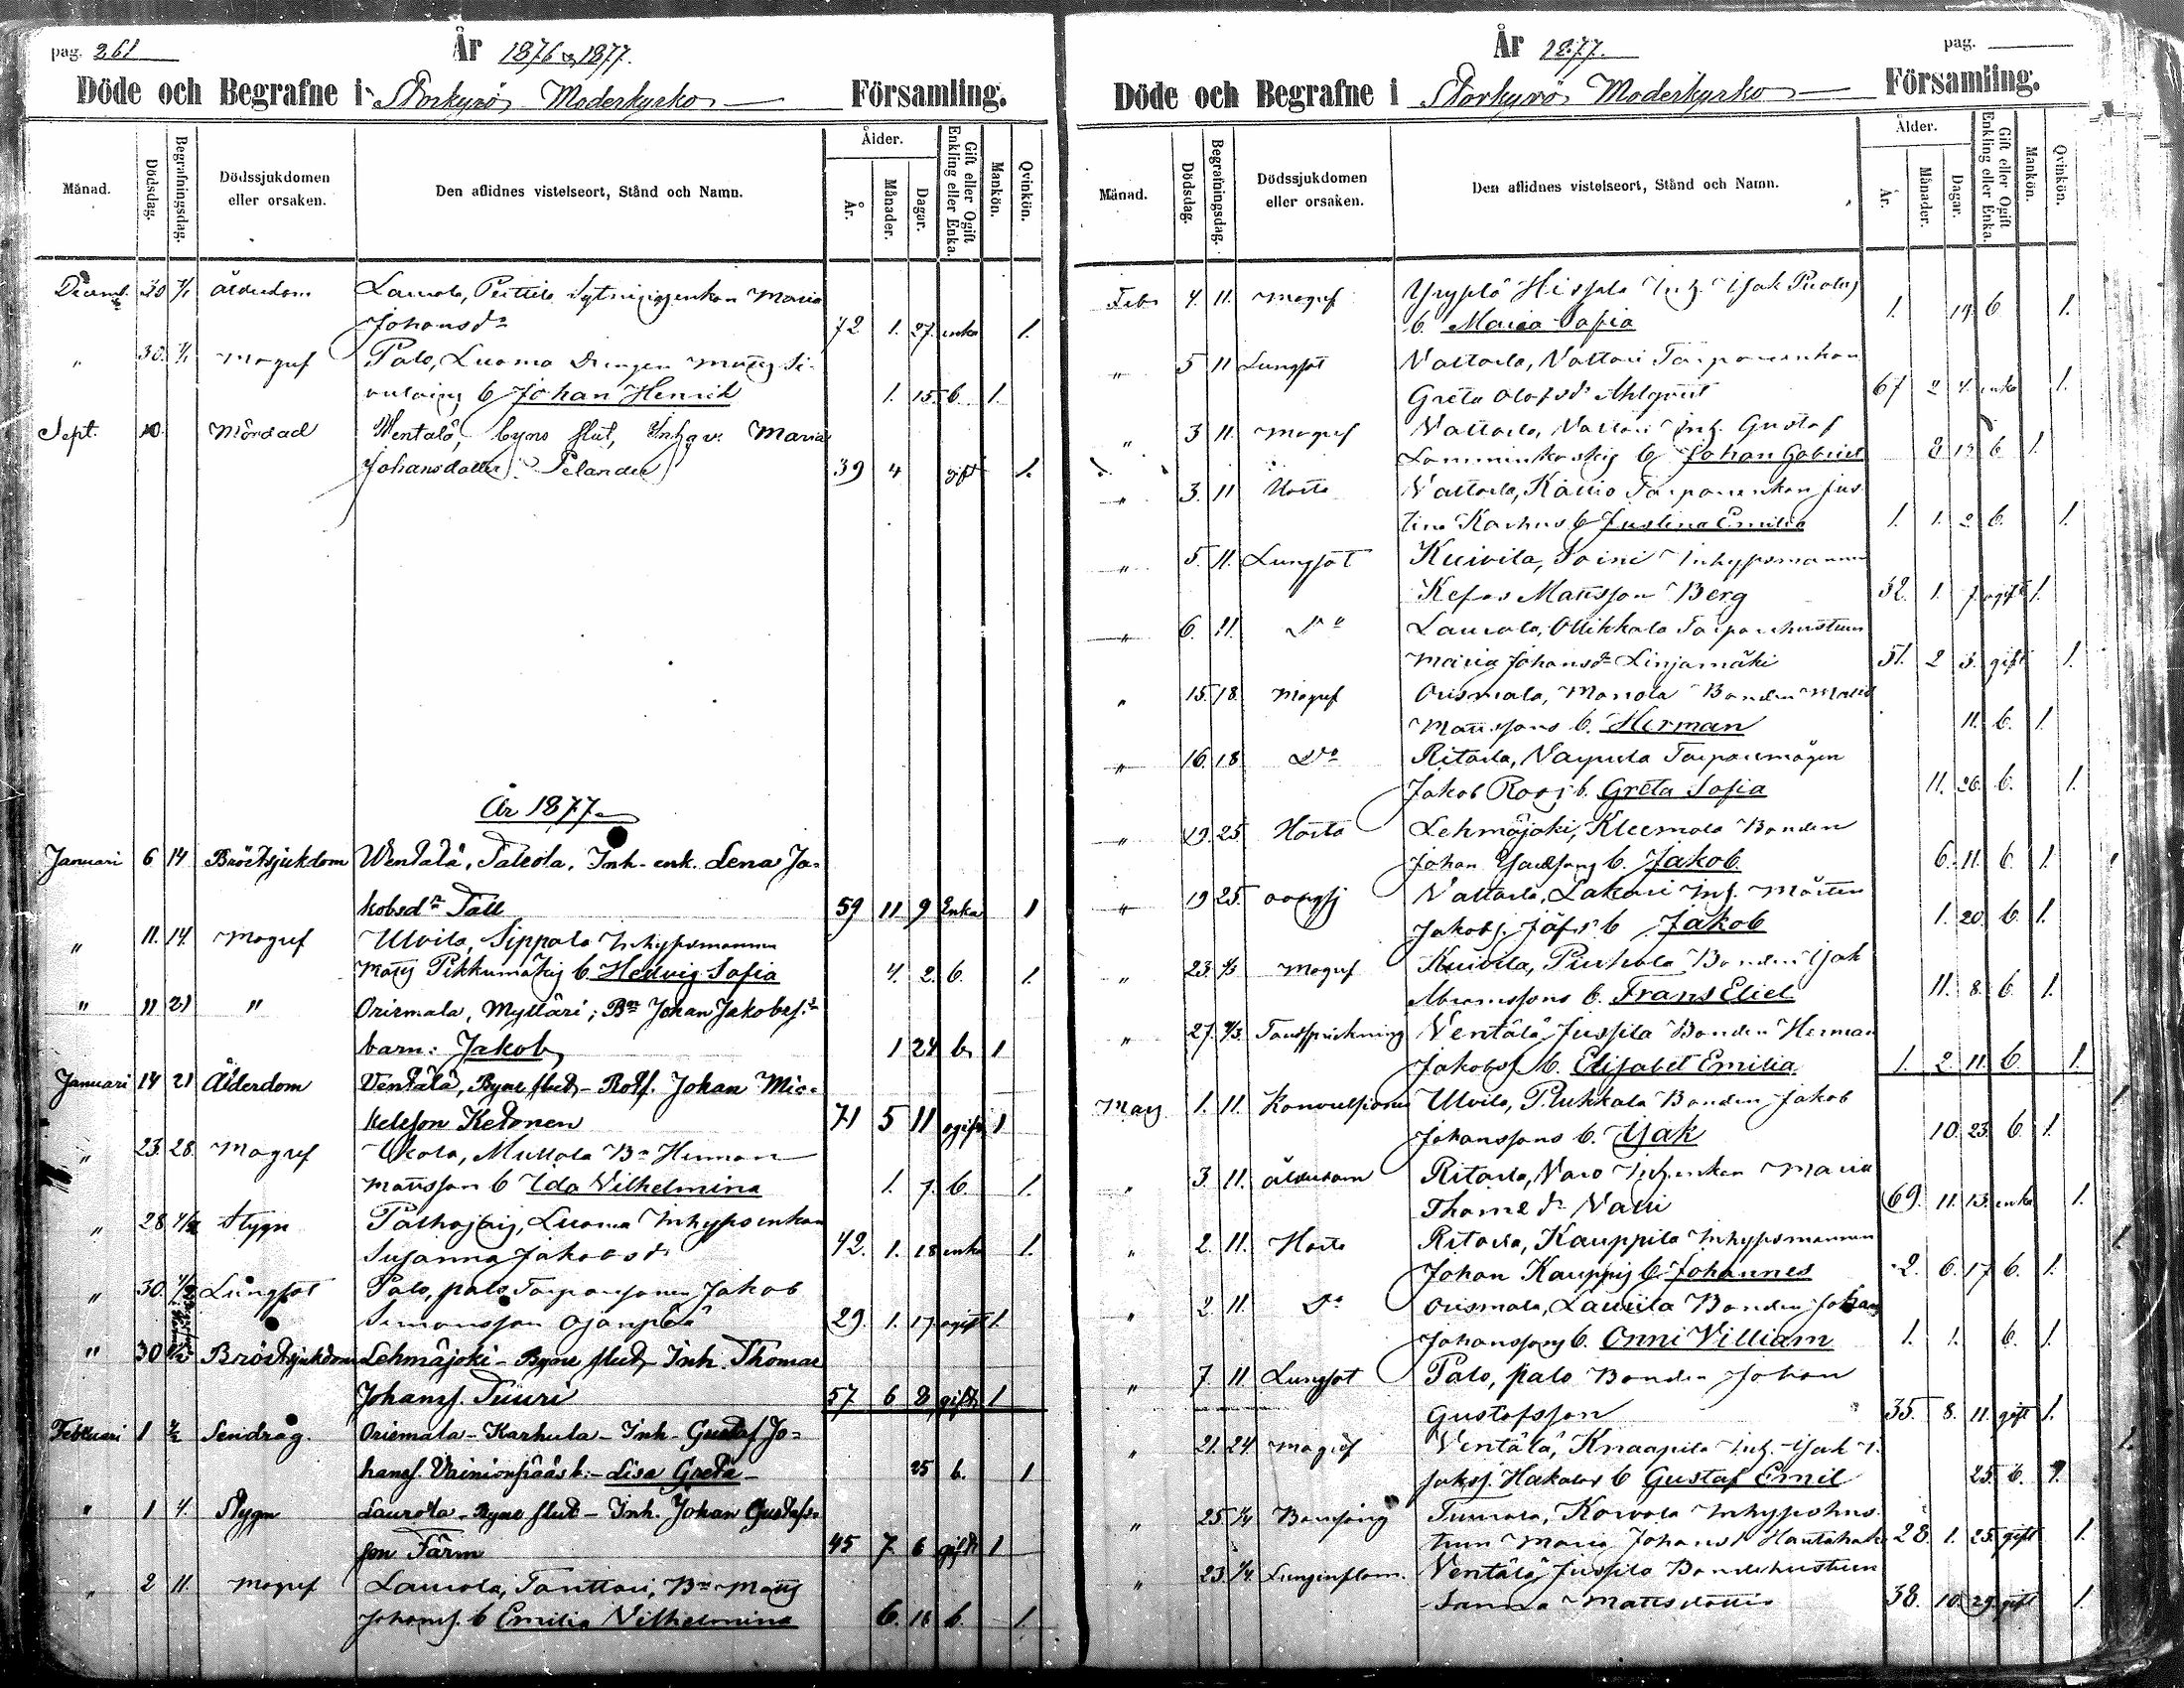 pag. 261
År 1876 & 1877.
Döde och Begrafne i Storkyrö Moderkyrko Församling.
Månad.
Dödsdag.
Begrafningsdag.
Dödssjukdomen
eller orsaken.
Den aflidnes vistelseort, Stånd och Namn.
Ålder.
År.
Månader.
Dagar.
Gift eller Ogift
Enkling eller Enka.
Mankön.
Qvinkön.
Decemb. 30 7/1 ålderdom Laurola, Perttila Sytningsenkan Maria
Johansdr 72 1. 27. enka 1.
" 30. 7/1 Magref Palo, Luoma Drengen Matts
b Johan Henrik 1. 15. b. 1.
Sept. 10. Mördad Wentalä, byns slut, Inh. Maria
Johansdotter Pelander 39 4 gift 1.
År 1877
Januari 6 14 Bröstsjukdom Wentälä, Talola, Inh. enk. Lena Ja-
kobsdr Tall 59 11 9 Enka 1
" 11. 14. Magref Ulvila, Sippola Inhysmannen
Matts Pikkumäkis b. Hedvig Sofia 4. 2. b. 1.
" 11 21 " Orismala, Mylläri; Bn Johan Jakobss.
barn: Jakob 1 24 b 1
Januari 14 21 Ålderdom Ventälä, Byns slut - Rotf. Johan Mic-
kelsson Ketonen 71 5 11 ogift 1
" 23. 28. Magref Ukola, Mullola Bn Herman
Mattsson b Ida Vilhelmina 1. 7. b. 1.
" 28 4/2 Stygn Palhojais, Luoma Inhysenkan
Susanna Jakobsdr 42. 1. 18 enka 1.
" 30. 4/2 Lungsot Palo, palo Torparsonen Jakob
Simonsson Ojanpää 29. 1. 17. ogift 1.
" 30 Bröstsjukdom Lehmäjoki - Byns slut - Inh. Thomas
Johanss. Tuuri 57 6 8 gift 1
Februari 1 4/2 Sendrag. Orismala - Karhula - Inh. Gustaf Jo-
hanss. Vainionpääs b: - Lisa Greta - 25 b. 1
" 1 4. Stygn Laurola - Byns slut - Inh. Johan Gustafs-
son Färm 45 7 6 gift 1
" 2 11. Magref Laurola, Tanttari, Bn Matts
Johanss. b Emilia Vilhelmina 6. 18 b. 1.
År 1877.
pag.
Döde och Begrafne i Storkyrö Moderkyrko Församling.
Månad.
Dödsdag.
Begrafningsdag.
Dödssjukdomen
eller orsaken.
Den aflidnes vistelseort, Stånd och Namn.
Ålder.
År.
Månader.
Dagar.
Gift eller Ogift
Enkling eller Enka.
Mankön.
Qvinkön.
Feb. 4. 11. Magref Yryselö Hissala Inh. Isak
b. Maria Sofia 1. 19 b 1.
" 5 11 Lungsot Valtarla, Valtari Torparenkan
Greta Olofsdr Ahlqvist 67 2 4. enka 1.
" 3 11. Magref Valtarla, Valtari Inh. Gustaf
Lamminkoskis b Johan Gabriel 2 13 b 1.
" 3. 11 Hosta Valtarla, Kallio Torparenkan Jus
tina Karhus b Justina Emilia 1. 1. 2. b. 1.
" 5. 11. Lungsot Kuivila, Soini Inhysmannen
Kefas Mattsson Berg 32. 1. 7. ogift 1.
" 6. 11. Do Laurola, Ollikkala Torparehustrun
Maria Johansdr Linjamäki 51. 2 3. gift 1.
" 15. 18. Magref Orismala, Manola Bonden Matts
Mattssons b. Herman 11. b. 1.
" 16. 18. Do Ritarla, Varpula Torparemågen
Jakob Ross b. Greta Sofia 11. 26. b. 1.
" 19. 25. Hosta Lehmäjoki, Kleemola Bonden
Johan b. Jakob 6. 11. b. 1.
" 19 25. Valtarla, Lakari Inh. Mårten
Jakobs. Jäfs b Jakob 1. 20. b. 1.
" 23. 4/3 Magref Kuivila, Purhola Bonden Isak
Abramssons b. Frans Eliel 11. 8. b. 1.
" 27. 4/3. Tandsprickning Ventälä, Jussila Bonden Herman
Jakobss. b. Elisabet Emilia 1. 2. 11. b. 1.
Mars 1. 11. Konvulsioner Ulvila, Plukkala Bonden Jakob
Johanssons b. Isak 10. 23. b. 1.
" 3. 11. ålderdom Ritarla, Varo Inh. enkan Maria
Thomedr Valli 69. 11. 13. enka 1.
" 2. 11. Hosta Ritarla, Kauppila Inhysmannen
Johan Kauppis b. Johannes 2. 6. 17. b. 1.
" 2. 11. Do Orismala, Laurila Bonden Johan
Johanssons b. Onni Villiam 1. 1. b. 1.
" 7. 11 Lungsot Palo, palo Bonden Johan
Gustafsson 35. 8. 11. gift 1.
" 21. 24. Magref Ventälä, Knaapila Inh. Isak
Isakss. Hakalas b Gustaf Emil 25. b. 1.
" 25. 1/4 Barnsäng Tuurala, Korvola Inhyshus
trun Maria Johansdr Hautahako 28. 1. 25. gift 1.
" 23. 1/4. Lunginflam. Ventälä, Jussila Bondehustrun
Sanna Mattsdotter 38. 10. 29. gift 1.